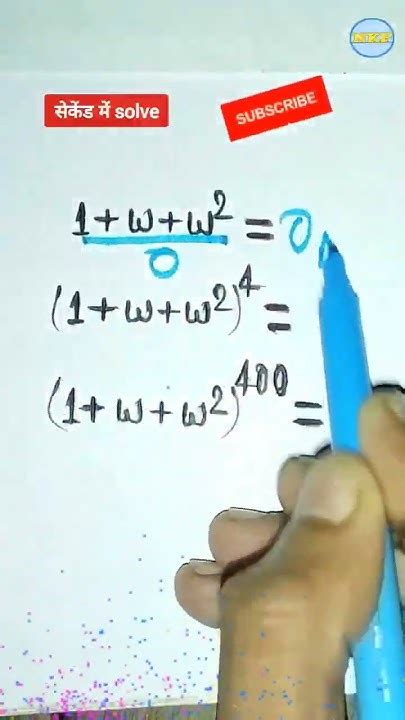 NKE
सेकेंड में solve
SUBSCRIBE
1+ω+ω² = 0
0
(1+ω+ω²)⁴ =
(1+ω+ω²)⁴⁰⁰ =